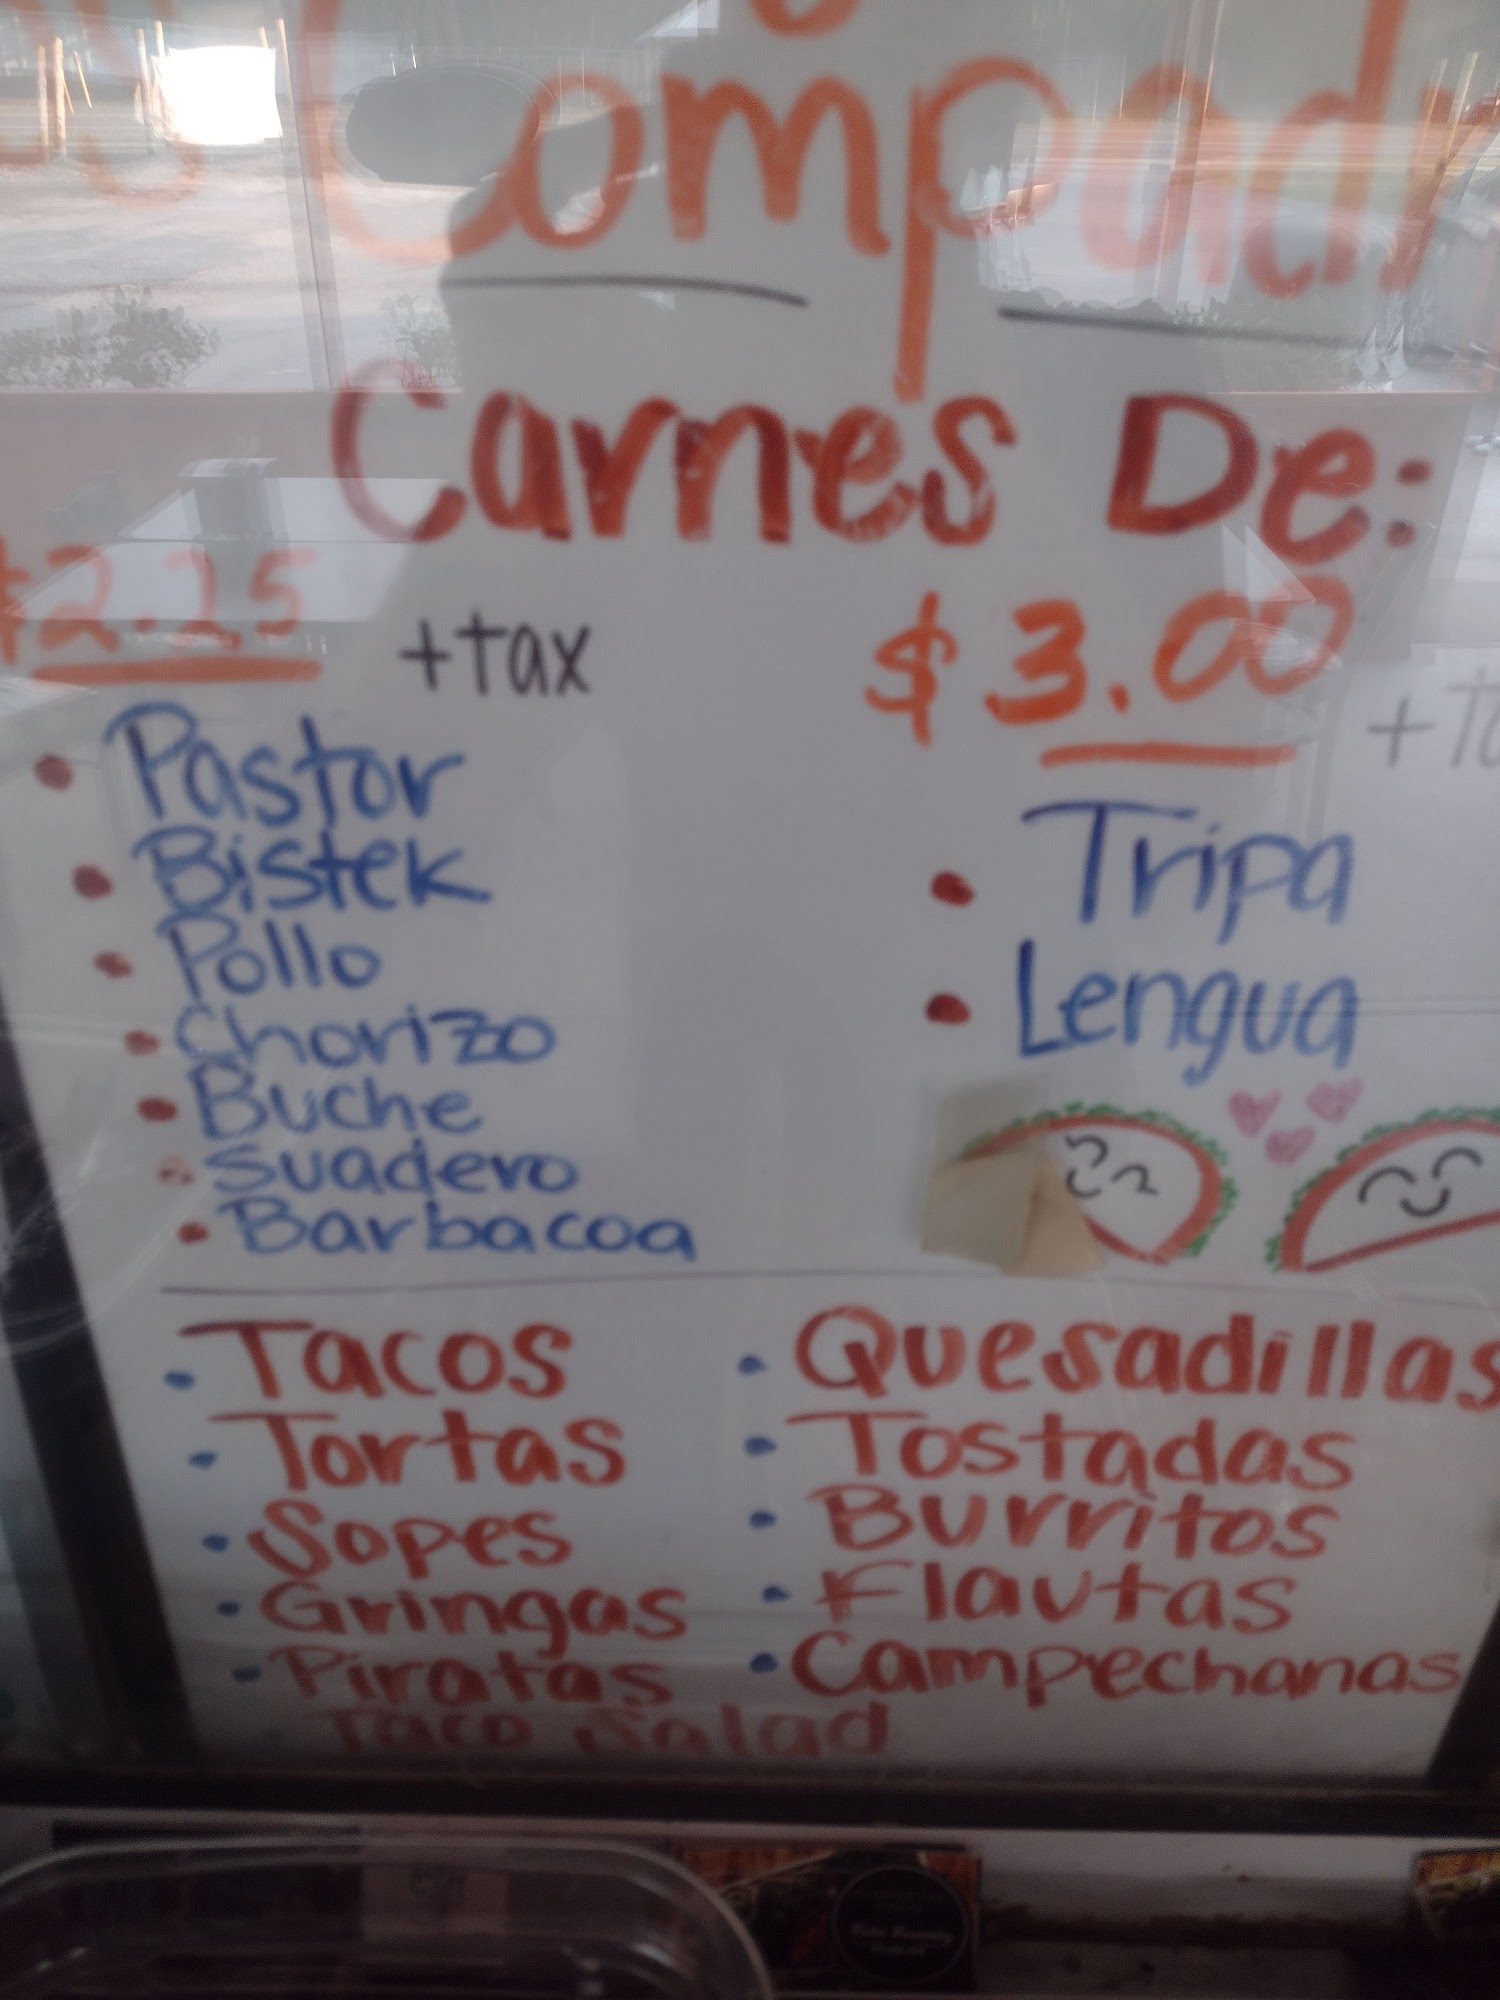 Compadr
Carnes De:
$2.25 +tax
• Pastor
• Bistek
• Pollo
• Chorizo
• Buche
• Suadero
• Barbacoa
$3.00
• Tripa
• Lengua
• Tacos
• Tortas
• Sopes
• Gringas
• Piratas
Taco Salad
• Quesadillas
• Tostadas
• Burritos
• Flautas
• Campechanas